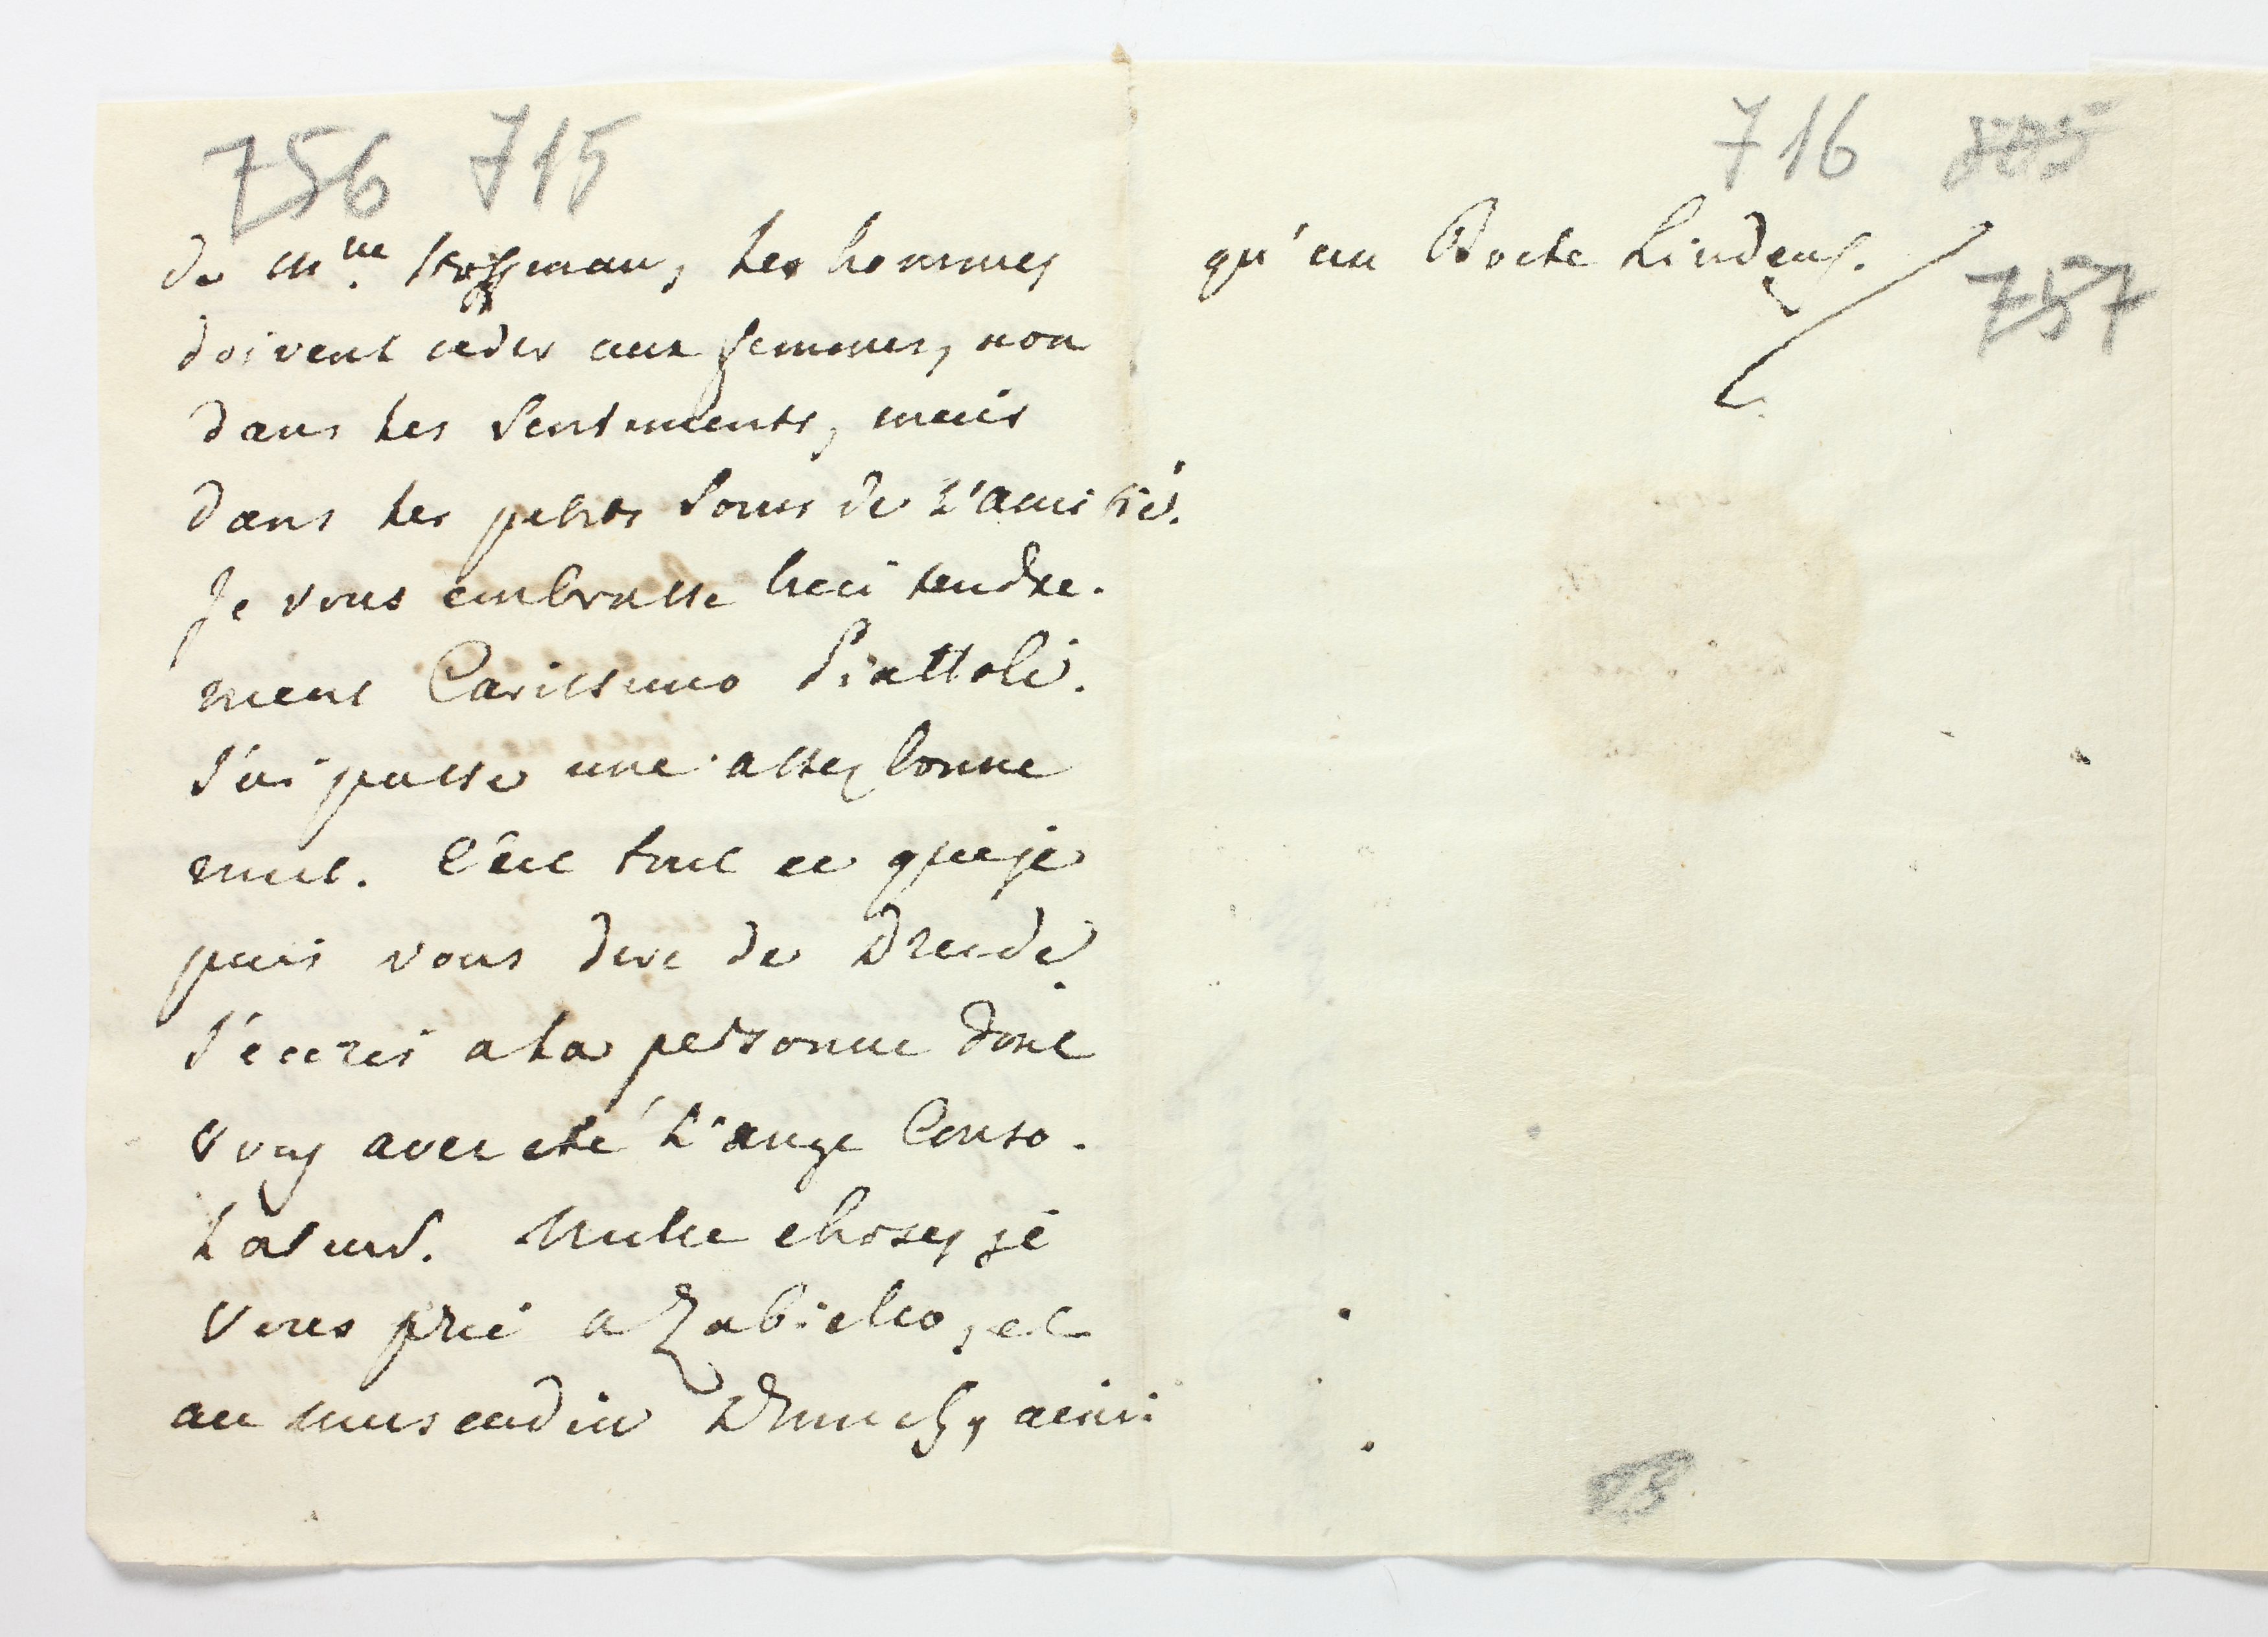 756 715
de M.me Hoffman, les hommes
doivent ceder aux femmes, non
dans les Sentiments, mais
dans les petits Soins de l'amitié.
Je vous embrasse bien tendre.
ment Carissimo Piattoli.
J'ai passé une assez bonne
nuit. C'est tout ce que je
puis vous dire de Dresde.
J'écris a la personne dont
vous avez eté l'ange Conso.
lateur. Mille choses je
vous prie a Zabiello, et
au muscadin ainsi
716
qu'au Docte Lindens.
757